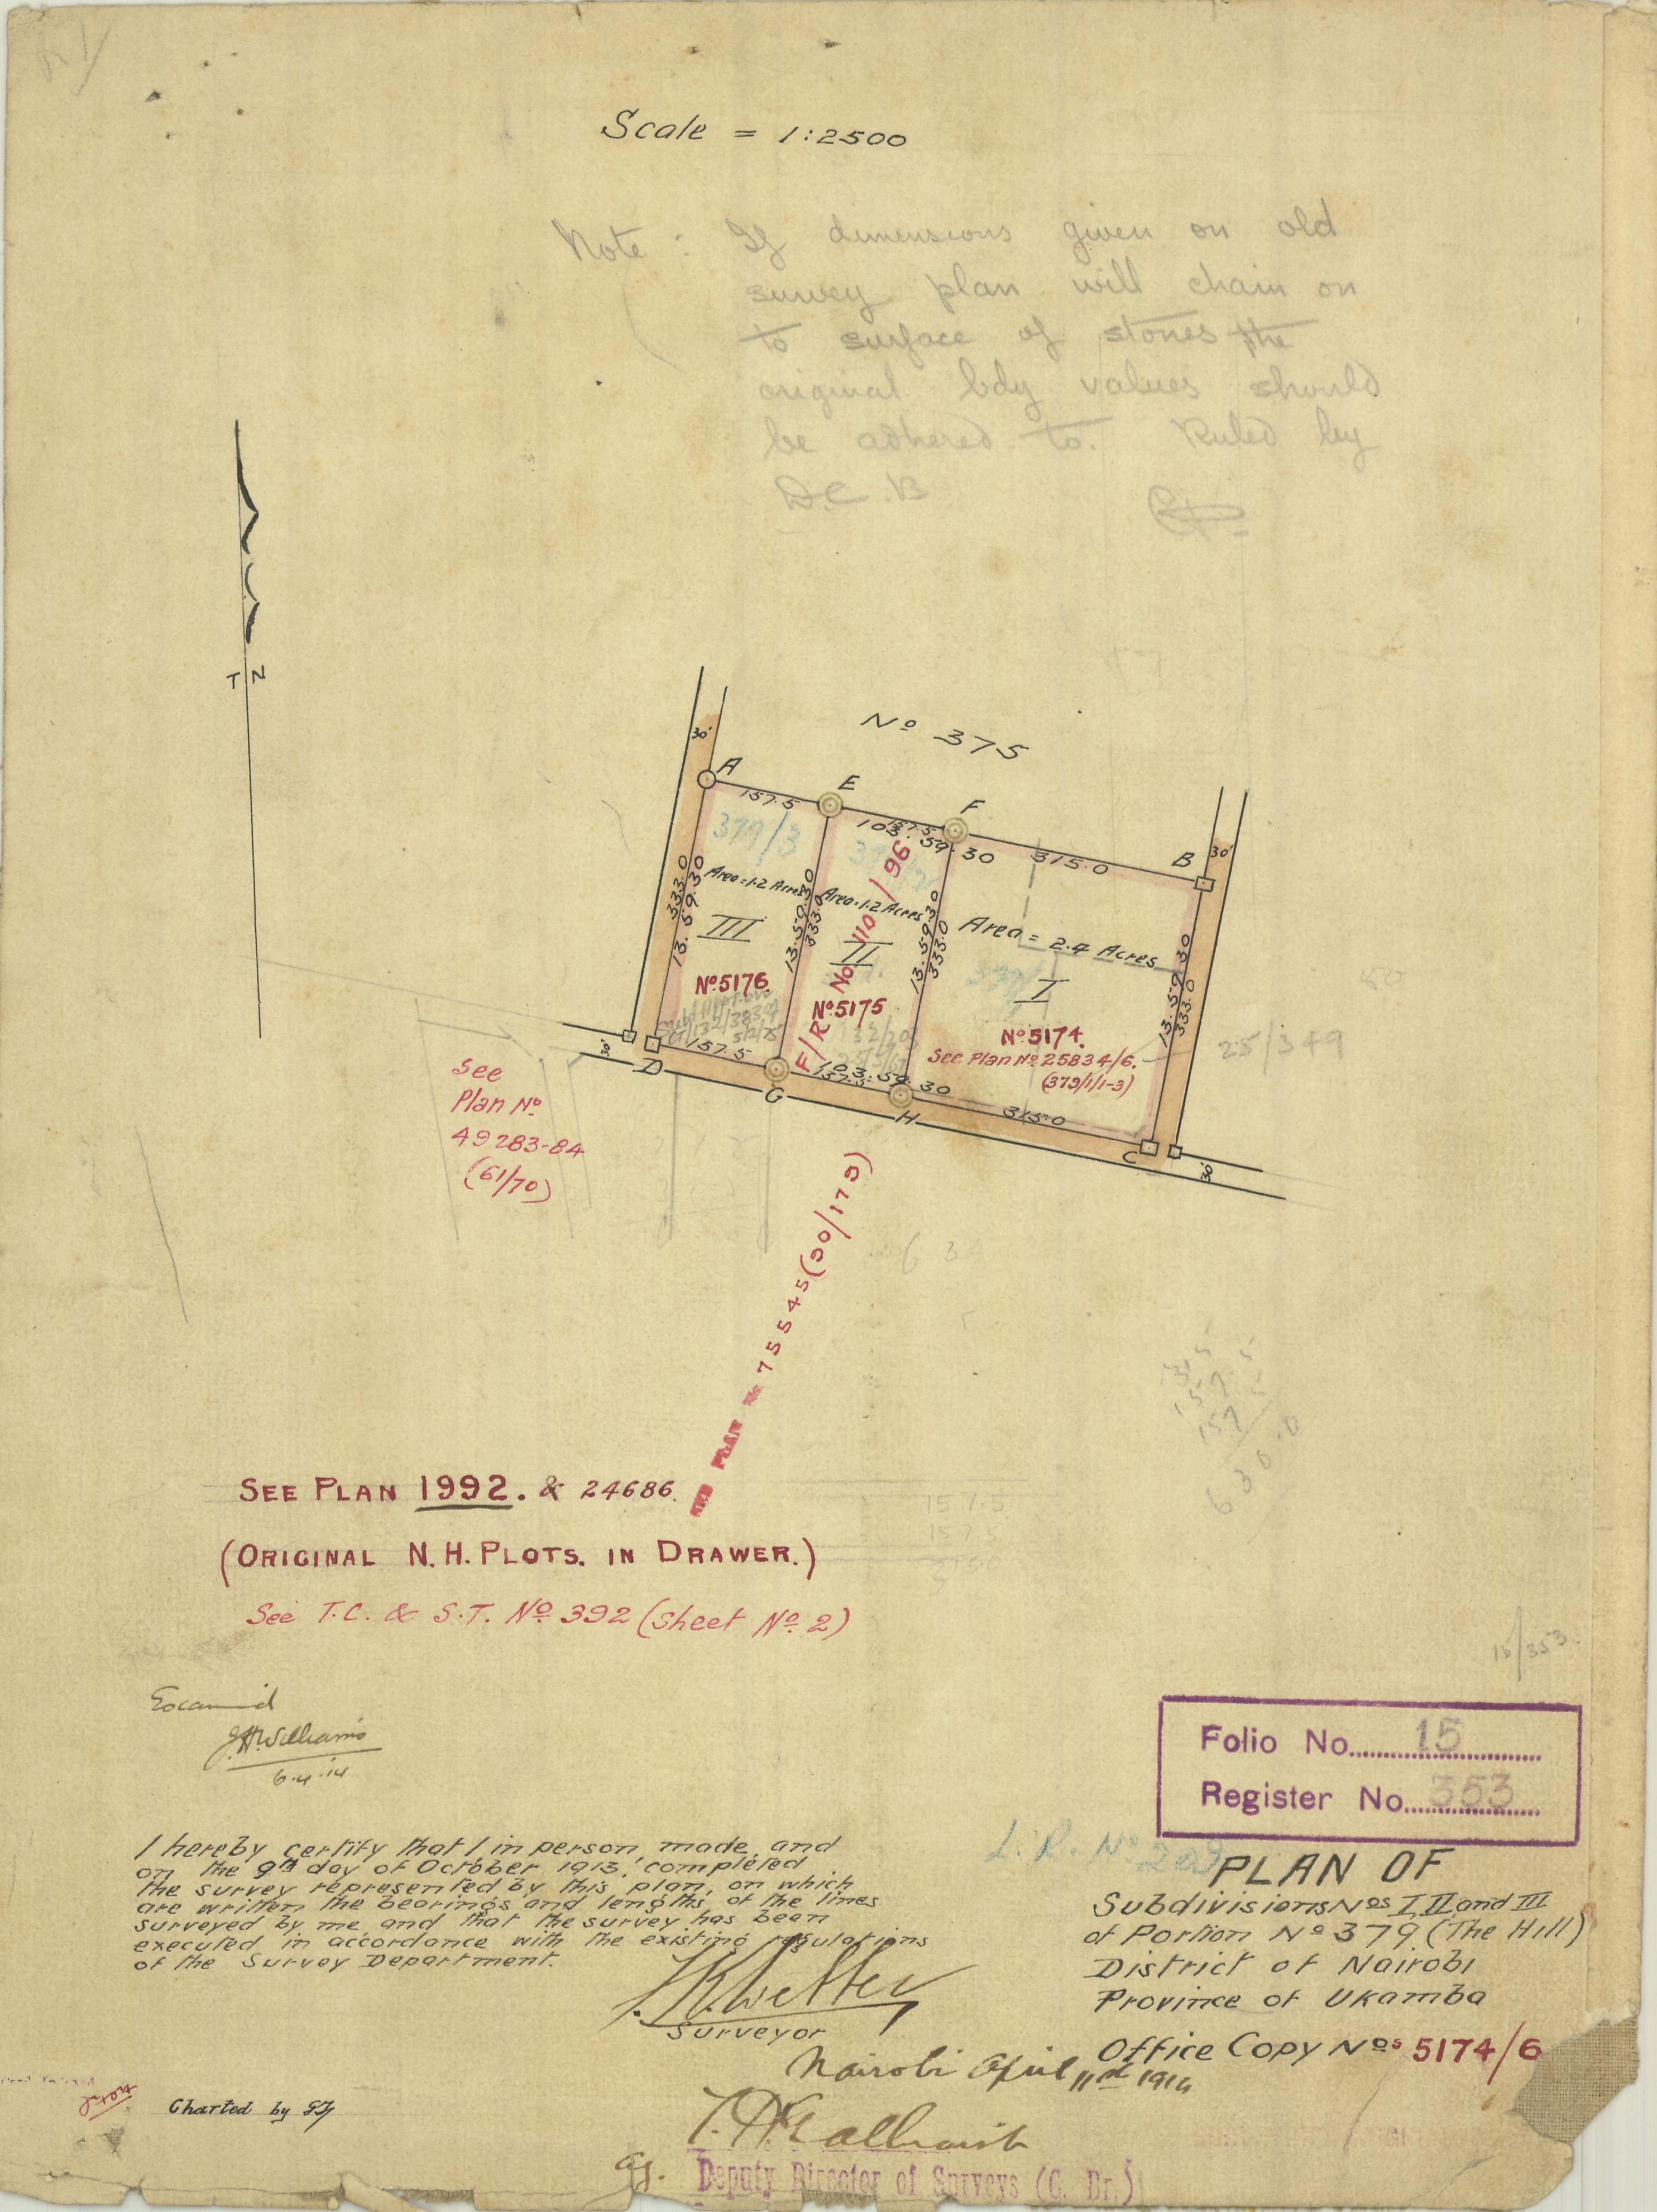 Scale = 1:2500
Note : If dimensions given on old
survey plan will chain on
to surface of stones the
original bdy values should
be adhered to. Ruled by
D.C.B
T N
Nº 375
30'
A
E
F
B
30'
157.5
157.5
103.59.30
315.0
379/3
333.0
13.59.30
Area=1.2 Acres
III
Nº5176
13.59.30
333.0
Area=1.2 Acres
II
Nº5175
F/R No 110/96
13.59.30
333.0
Area = 2.4 Acres
I
Nº5174.
See Plan Nº 25834/6.
(379/1/1-3)
13.59.30
333.0
25/349
30'
D
157.5
G
103.59.30
157.5
H
315.0
C
30'
See
Plan Nº
49283-84
(61/70)
PLAN Nº 75545(90/175)
630
157
157
630.0
SEE PLAN 1992. & 24686.
157.5
157.5
315.0
(ORIGINAL N.H. PLOTS. IN DRAWER.)
See T.C. & S.T. Nº 392 (Sheet Nº 2)
15/353.
Examined
J.H.Williams
6.4.14
Folio No. 15
Register No. 353
I hereby certify that I in person made, and
on the 9th day of October, 1913, completed
the survey represented by this plan, on which
are written the bearings and lengths of the lines
surveyed by me, and that the survey has been
executed in accordance with the existing regulations
of the Survey Department.
Surveyor
L.R. Nº 209
PLAN OF
Subdivisions Nos I, II and III
of Portion Nº 379 (The Hill)
District of Nairobi
Province of Ukamba
Office Copy Nos 5174/6
Nairobi April 11th 1914
Charted by
Ag. Deputy Director of Surveys (C. Br.)